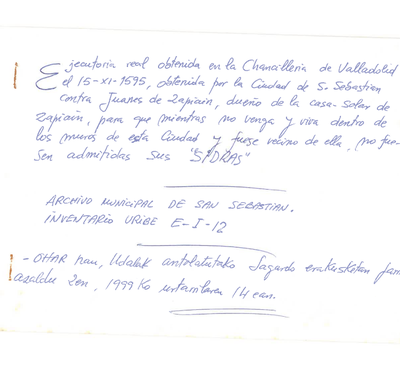 Ejecutoria real obtenida en la Chancilleria de Valladolid
el 15-XI-1595, obtenida por la Ciudad de S. Sebastian
contra Juanes de Zapiain, dueño de la casa-solar de
Zapiain, para que mientras no venga y viva dentro de
los muros de esta Ciudad y fuese vecino de ella, no fue-
sen admitidas sus "SIDRAS"
ARCHIVO MUNICIPAL DE SAN SEBASTIAN.
INVENTARIO URIBE E-I-12
- OHAR hau, Udalak antolatutako Sagardo erakusketan
azaldu zen, 1999ko urtarrilaren 14ean.